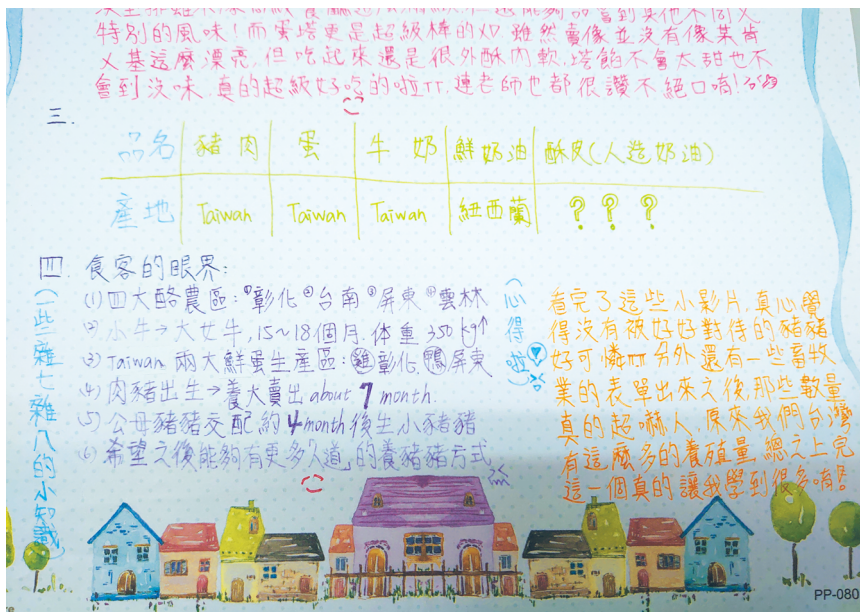 特別的風味！而蛋塔更是超級棒的如.雖然賣像並沒有像某肯
ㄨ基這麼漂亮,但吃起來還是很外酥內軟,塔餡不會太甜也不
會到沒味.真的超級好吃的啦ㄒㄒ.連老師也都很讚不絕口唷!
三.
品名 豬肉 蛋 牛奶 鮮奶油 酥皮(人造奶油)
產地 Taiwan Taiwan Taiwan 紐西蘭 ? ? ?
四.食客的眼界:
(一些雜七雜八的小知識)
(1)四大酪農區:①彰化②台南③屏東④雲林
(2)小牛→大女牛,15~18個月.体重350kg↑
(3)Taiwan兩大鮮蛋生產區:雞彰化.鴨屏東
(4)肉豬出生→養大賣出about 7 month.
(5)公母豬豬交配約4month後生小豬豬
(6)希望之後能夠有更多「人道」的養豬豬方式
(心得啦)
看完了這些小影片,真心覺
得沒有被好好對待的豬豬
好可憐ㄒㄒ另外還有一些畜牧
業的表單出來之後,那些數量
真的超嚇人,原來我們台灣
有這麼多的養殖量,總之上完
這一個真的讓我學到很多唷!!
PP-080